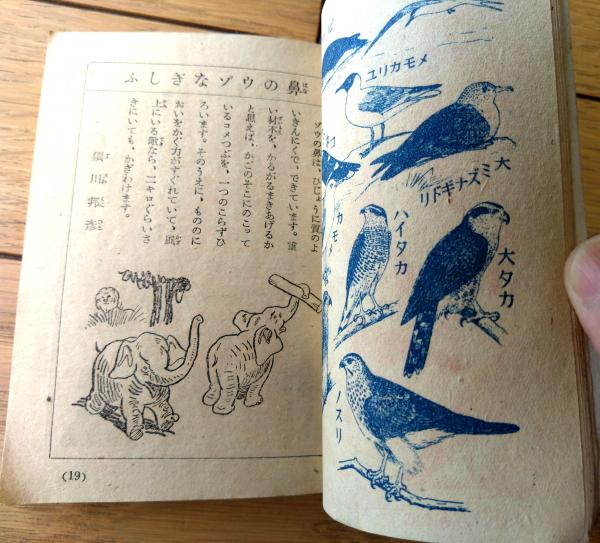 ふしぎなゾウの鼻
はな
ゾウの鼻は、ひじょうに質のよ
いきんにくで、できています。重
い材木を、かるがるまきあげるか
と思えば、かごのそこにのこって
いるコメつぶを、一つのこらずひ
ろいます。そのうえに、もののに
おいをかぐ力がすぐれていて、風
上にいる敵なら、二キロぐらいさ
きにいても、かぎわけます。
須川邦彦
(19)
ユリカモメ
大ミズナギドリ
カモメ
ハイタカ
大タカ
ノスリ